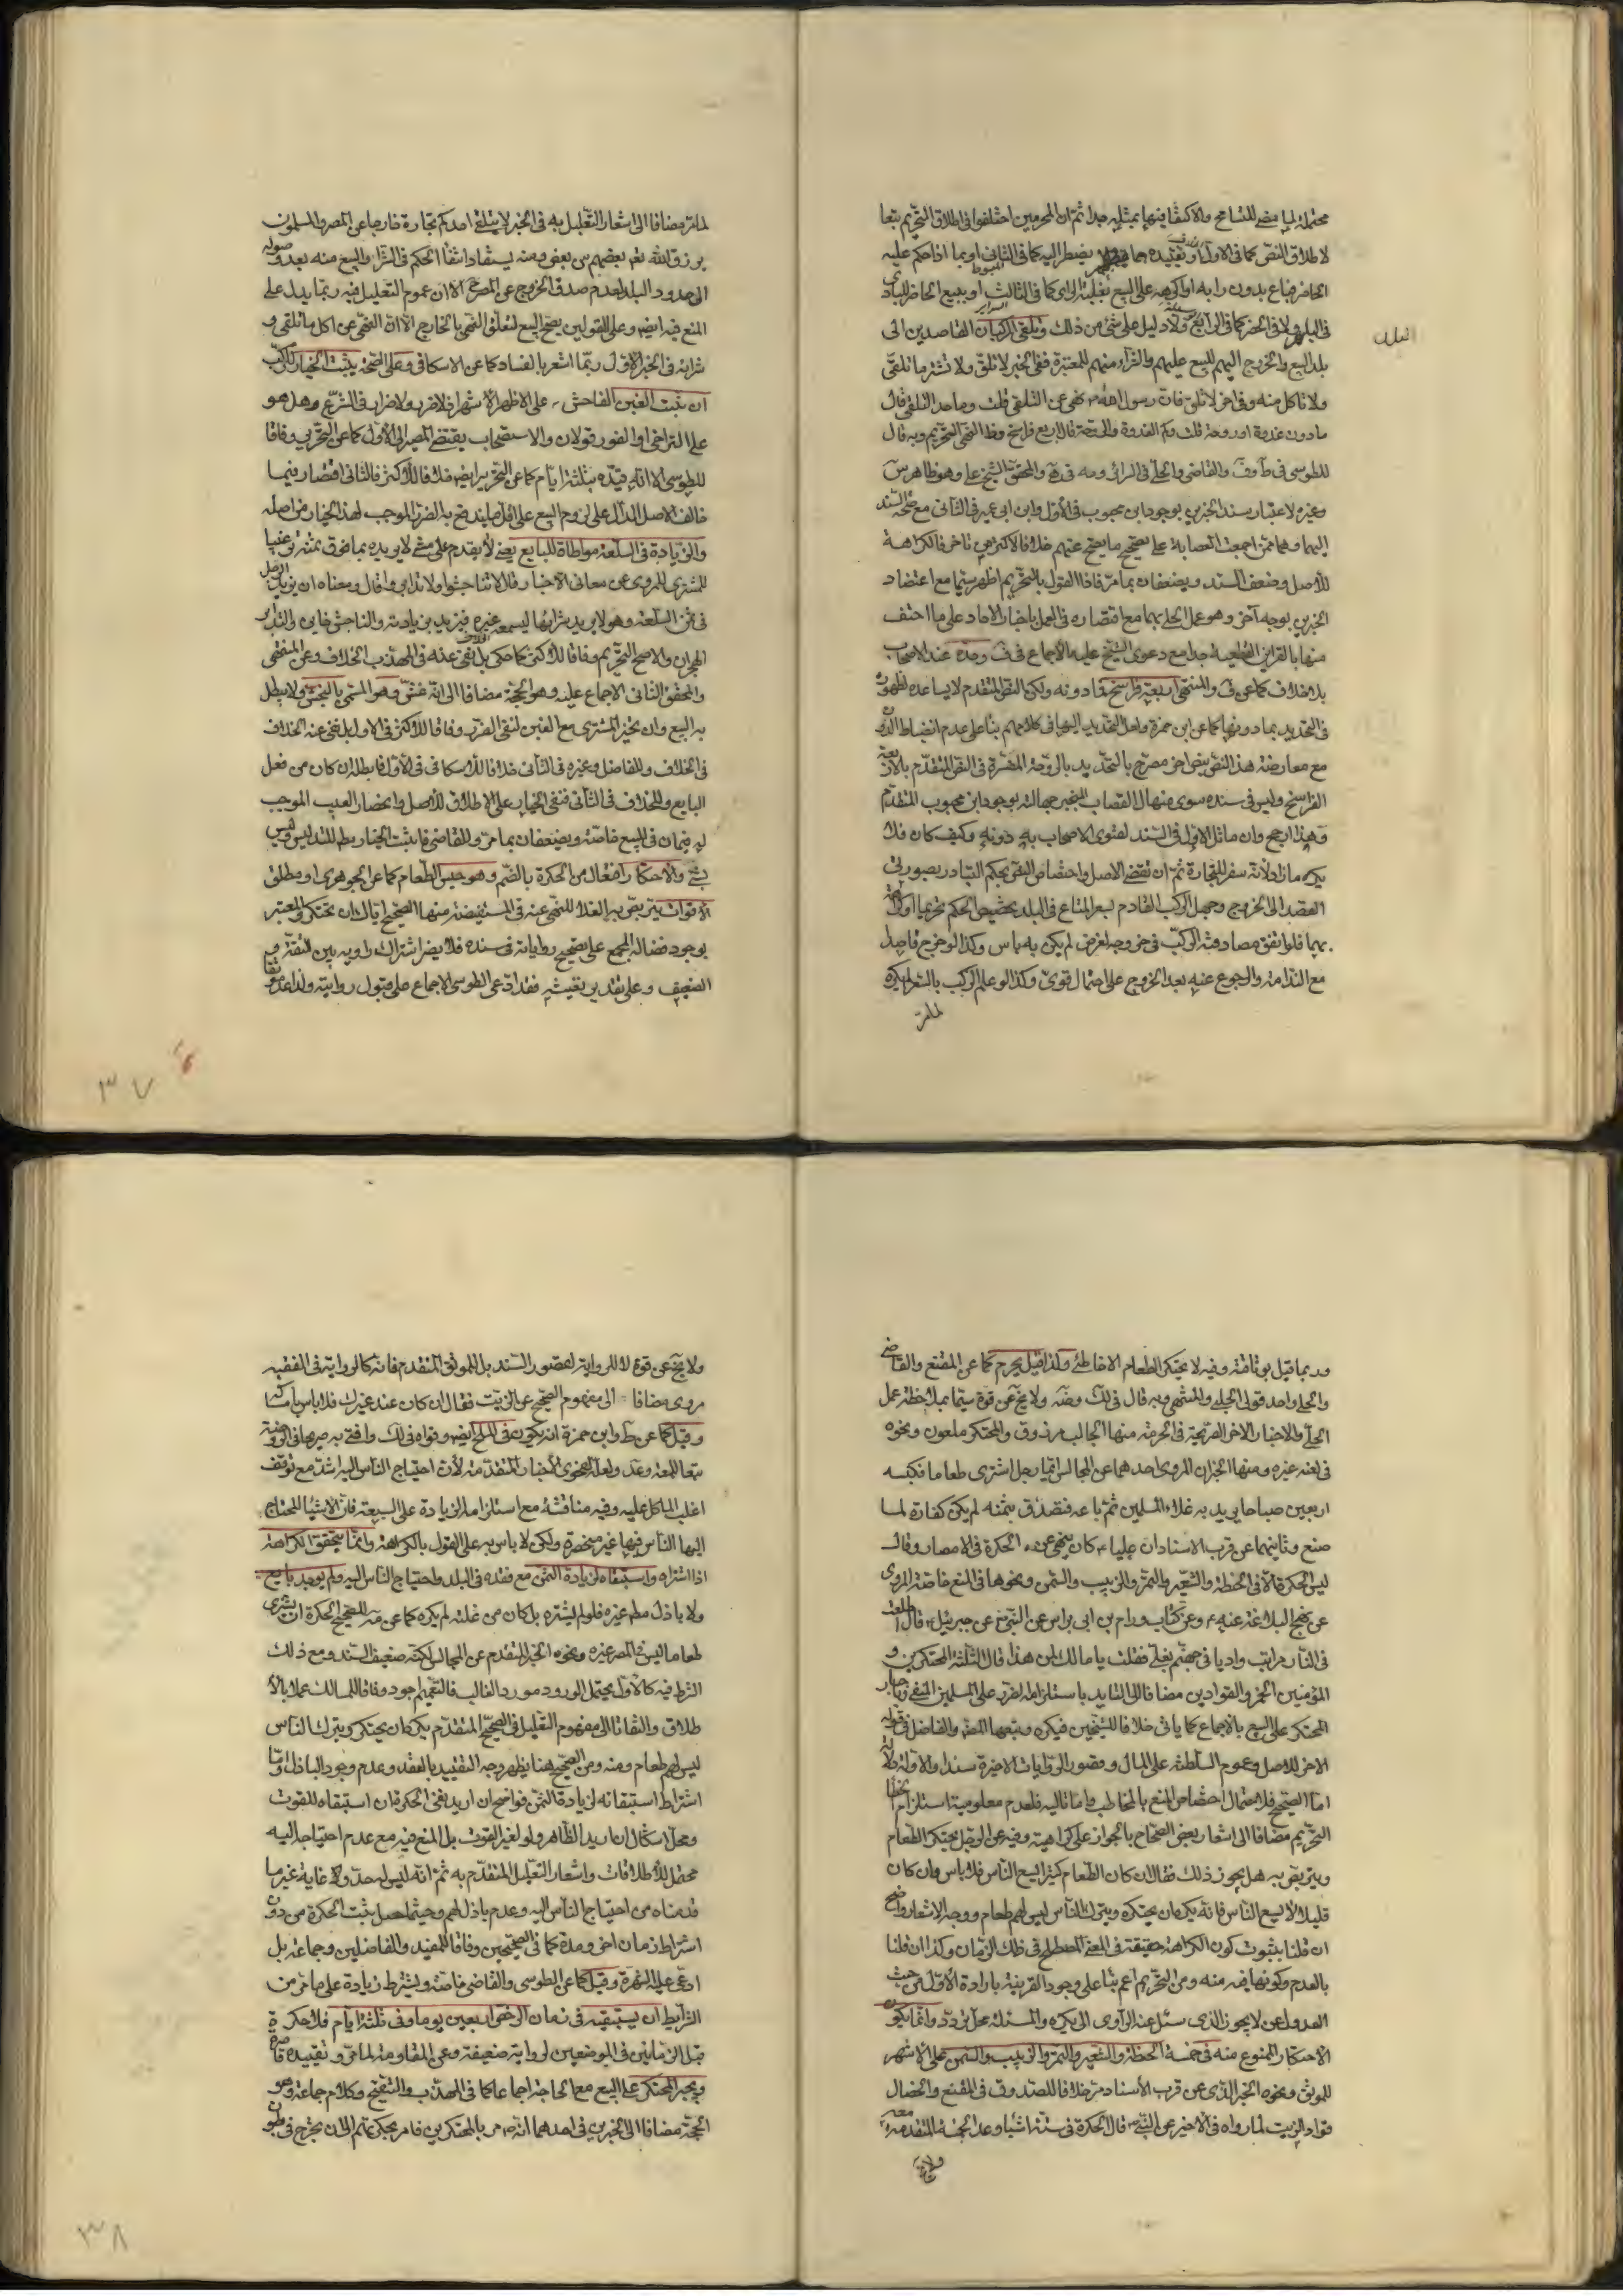 محتملة لما مضى للتسامح والاكتفاء فيها بمثله جدا ثم ان المحرمين اختلفوا في اطلاق التحريم تبعا
لاطلاق النص كما في الاول او تقييده بما يضطر اليه كما في الثاني او بما اذا حكم عليه
الحاضر فباع بدون رايه او اكرهه على البيع بغلبة الراى كما في الثالث او ببيع الحاضر للبادى
في البلد ولا في الحضر كما في الرابع ولا دليل على شئ من ذلك وتلقى الركبان القاصدين الى
بلد البيع والخروج اليهم للبيع عليهم والشراء منهم للمعتبرة ففى الخبر لا تلق ولا تشتر ما تلقى
ولا تاكل منه وفى اخر لا تلق فان رسول الله ص نهى عن التلقى قلت وما حد التلقى قال
ما دون غدوة او روحة قلت وكم الغدوة والروحة قال اربع فراسخ وظ النهى التحريم وبه قال
للطوسى في ط وف والقاضى والحلى في السرائر ومه في هى والمحقق الشيخ على وهو ظاهر س
وغيره لاعتبار سند الخبرين بوجود ابن محبوب في الاول وابن ابى عمير في الثانى مع صحة السند
اليهما وهما ممن اجمعت العصابة على تصحيح ما يصح عنهم خلافا للاكثر من تاخر فالكراهة
للاصل وضعف السند ويضعفان بما مر فاذا القول بالتحريم اظهر سيما مع اعتضاد
الخبرين بوجه آخر وهو عمل الحلى بهما مع اقتصاره في العمل باخبار الاحاد على ما احتف
منها بالقراين القطعية جدا مع دعوى الشيخ عليه الاجماع في ف وحده عند الاصحاب
بلا خلاف كما عن ف والمنتهى اربعة فراسخ فما دونه ولكن النص المتقدم لا يساعده لظهوره
في التحديد بما دونها كما عن ابن حمزة ولعل التحديد اليها في كلامهم بناء على عدم انضباط الدون
مع معارضة هذا النص بنص اخر مصرح بالتحديد بالروحة المفسرة في النص المتقدم بالاربعة
الفراسخ وليس في سنده سوى منهال القصاب المنجبر جهالته بوجود ابن محبوب المتقدم
وهذا ارجح وان ماثل الاول في السند لفتوى الاصحاب به دونه وكيف كان فلا
يكره ما زاد لانه سفر للتجارة ثم ان مقتضى الاصل واختصاص النص بحكم التبادر بصورتى
القصد الى الخروج وجهل الركب القادم بسعر المتاع في البلد تخصيص الحكم تحريما او كراهة
بهما فلو اتفق مصادفته الركب في خروجه لغرض لم يكن به باس وكذا لو خرج قاصدا
مع الندامة والرجوع عنه بعد الخروج على احتمال قوى وكذا لو علم الركب بالسعر لم يكره
لما مر
لما مر مضافا الى اشعار التعليل به في الخبر لا يتلقى احدكم تجارة خارجا عن المصر والمسلمون
يرزق الله تعم بعضهم من بعض ومنه يستفاد انتفاء الحكم في الشراء والبيع منه بعد وصوله
الى حدود البلد لعدم صدق الخروج عن المصر ح الا ان عموم التعليل فيه ربما يدل على
المنع فيه ايضه وعلى القولين يصح البيع لتعلق النهى بالخارج الا ان النهى عن اكل ما تلقى و
شرائه في الخبر الاول ربما اشعر بالفساد كما عن الاسكافى وعلى الصحة يثبت الخيار للركب
ان ثبت الغبن الفاحش على الاظهر الاشهر اذ لا ضرر ولا ضرار في الشرع وهل هو
على التراخى او الفور قولان والاستصحاب يقتضى المصير الى الاول كما عن التحرير وفاقا
للطوسى الا انه قيده بثلثة ايام كما عن التحرير ايضه خلافا للاكثر فالثانى اقتصار فيما
خالف الاصل الدال على لزوم البيع على اقل ما يندفع به الضرر الموجب لهذا الخيار من اصله
والزيادة في السلعة مواطاة للبايع يعنى لا يقدم على شئ لا يريده بما فوق ثمنه ترغيبا
للمشترى للمروى عن معانى الاخبار قال لا تناجشوا ولا تدابروا قال ومعناه ان يزيد الرجل
في ثمن السلعة وهو لا يريد شرائها ليسمعه غيره فيزيد بزيادته والناجش خاين والتدابر
الهجران والاصح التحريم وفاقا للاكثر كما حكى بل نفى عنه في المهذب الخلاف وعن المنتهى
والمحقق الثانى الاجماع عليه وهو الحجة مضافا الى انه غش وهو المسمى بالنجش ولا يبطل
به البيع وان تخير المشترى مع الغبن لنفى الضرر وفاقا للاكثر في الاول بل نفى عنه الخلاف
في الخلاف وللفاضل وغيره في الثانى خلافا للاسكافى في الاول فابطله ان كان من فعل
البايع وللخلاف في الثانى فنفى الخيار على الاطلاق للاصل وانحصار العيب الموجب
له فيما كان في المبيع خاصة ويضعفان بما مر وللقاضى فاثبت الخيار مط للتدليس وليس
بشئ والاحتكار افتعال من الحكرة بالضم وهو حبس الطعام كما عن الجوهرى او مطلق
الاقوات يتربص به الغلاء للنهى عنه في المستفيضة منها الصحيح اياك ان تحتكر والمعتبر
بوجود فضالة المجمع على تصحيح رواياته في سنده فلا يضر اشتراك راويه بين الثقة و
الضعيف وعلى تقدير تعيينه فقد ادعى الطوسى الاجماع على قبول روايته ولذا عد موثقا
٣٧
وربما قيل بوثاقته وفيه لا يحتكر الطعام الا خاطئ ولذا قيل يحرم كما عن المقنع والقاضى
والحلى واحد قولى الحلبى والمنتهى وبه قال في لك وضه ولا يخ عن قوة سيما بملاحظة عمل
الحلى والاخبار الاخر الصريحة في الحرمة منها الجالب مرزوق والمحتكر ملعون ونحوه
في لعنه غيره ومنها الخبران المروى احدهما عن المجالس ايما رجل اشترى طعاما فكبسه
اربعين صباحا يريد به غلاء المسلمين ثم باعه فتصدق بثمنه لم يكن كفارة لما
صنع وثانيهما عن قرب الاسناد ان عليا ع كان ينهى عن الحكرة في الامصار وقال
ليس الحكرة الا في الحنطة والشعير والتمر والزبيب والسمن ونحوها في المنع خاصة المروى
عن نهج البلاغة عنه ع وعن كتاب ورام بن ابى فراس عن النبى ص عن جبرئيل ع قال اطلعت
في النار فرايت واديا في جهنم يغلى فقلت يا مالك لمن هذا قال لثلثة المحتكرين و
المدمنين الخمر والقوادين مضافا الى التايد باستلزامه الضرر على المسلمين المنفى واجبار
المحتكر على البيع بالاجماع كما ياتى خلافا للشيخين فيكره وتبعهما المص والفاضل في قوله
الاخر للاصل وعموم السلطنة على المال وقصور الروايات الاخيرة سندا والاوله دلالة
اما الصحيح فلاحتمال اختصاص المنع بالمخاطب واما تاليه فلعدم معلومية استلزام الخطاء
التحريم مضافا الى اشعار بعض الصحاح بالجواز على كراهية وفيه عن الرجل يحتكر الطعام
ويتربص به هل يجوز ذلك فقال ان كان الطعام كثيرا يسع الناس فلا باس وان كان
قليلا لا يسع الناس فانه يكره ان يحتكره ويترك الناس ليس لهم طعام ووجه الاشعار واضح
ان قلنا بثبوت كون الكراهة حقيقة في المعنى المصطلح في ذلك الزمان وكذا ان قلنا
بالعدم وكونها فيه منه ومن التحريم اعم بناء على وجود القرينة بارادة الاول من حيث
العدول عن لا يجوز الذى سئل عنه الراوى الى يكره والمسئلة محل تردد وانما يكون
الاحتكار الممنوع منه في خمسة الحنطة والشعير والتمر والزبيب والسمن على الاشهر
للموثق ونحوه الخبر الذى عن قرب الاسناد مر خلافا للصدوق في المقنع والخصال
فزاد الزيت لما رواه في الاخير عن النبى ص قال الحكرة في ستة اشياء وعد الخمسة المتقدمة معه
ولا يخ
ولا يخ عن قوة لا للرواية لقصور السند بل للموثق المتقدم فانه كالرواية في الفقيه
مروى مضافا الى مفهوم الصحيح عن الزيت فقال ان كان عند غيرك فلا باس بامساكه
وقيل كما عن ط وابن حمزة انه يكون في الملح ايضه وقواه في لك وافتى به صريحا في الروضة
تبعا للمعة وعد ولعله لفحوى الاخبار المتقدمة لان احتياج الناس اليه اشد مع توقف
اغلب الماكل عليه وفيه مناقشة مع استلزامه الزيادة على السبعة فان الاشياء المحتاج
اليها الناس فيها غير منحصرة ولكن لا باس به على القول بالكراهة وانما يتحقق الكراهة
اذا اشتراه واستبقاه لزيادة الثمن مع فقده في البلد واحتياج الناس اليه ولم يوجد بايع
ولا باذل مط غيره فلو لم يشتره بل كان من غلته لم يكره كما عن مه للصحيح الحكرة ان يشترى
طعاما ليس في المصر غيره ونحوه الخبر المتقدم عن المجالس لكنه ضعيف السند ومع ذلك
الشرط فيه كالاول يحتمل الورود مورد الغالب فالتعميم اجود وفاقا للمسالك عملا بالا
طلاق والتفاتا الى مفهوم التعليل في الصحيح المتقدم يكره ان يحتكر ويترك الناس
ليس لهم طعام ومنه ومن الصحيح هنا يظهر وجه التقييد بالفقد وعدم وجود الباذل واما
اشتراط استبقائه لزيادة الثمن فواضح ان اريد نفى الحكرة ان استبقاه للقوت
ومحل اشكال ان اريد الظاهر ولو لغير القوت بل المنع فيه مع عدم احتياجه اليه
محتمل للاطلاقات واشعار التعليل المتقدم به ثم انه ليس له حد ولا غاية غير ما
قدمناه من احتياج الناس اليه وعدم باذل لهم وحيثما حصل يثبت الحكرة من دون
اشتراط زمان اخر ومدة كما في الصحيحين وفاقا للمفيد والفاضلين وجماعة بل
ادعى عليه الشهرة وقيل كما عن الطوسى والقاضى خاصة ويشترط زيادة على ما مر من
الشرايط ان يستبقيه في زمان الرخص اربعين يوما وفى ثلثة ايام فلا حكرة
قبل الزمانين في الموضعين لرواية ضعيفة وعن المقاومة لما مر وتقييده قاصرة
ويجبر المحتكر على البيع مع الحاجة اجماعا كما في المهذب والتنقيح وكلام جماعة وهو
الحجة مضافا الى الخبرين في احدهما انه ص مر بالمحتكرين فامر بحكرتهم الى ان يخرج في بطون
٣٨